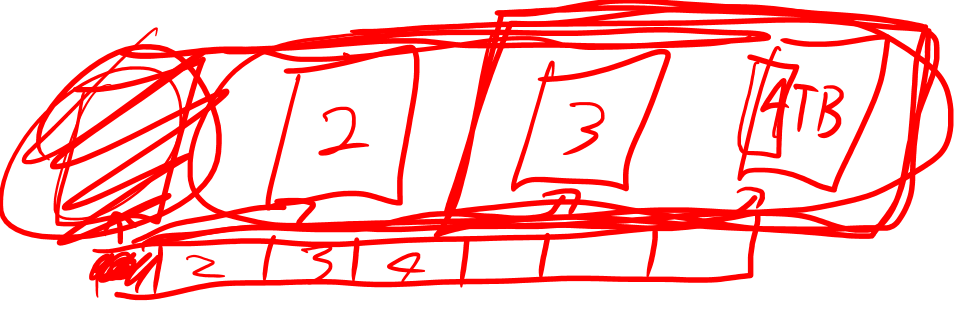 2 3 4TB
2 3 4